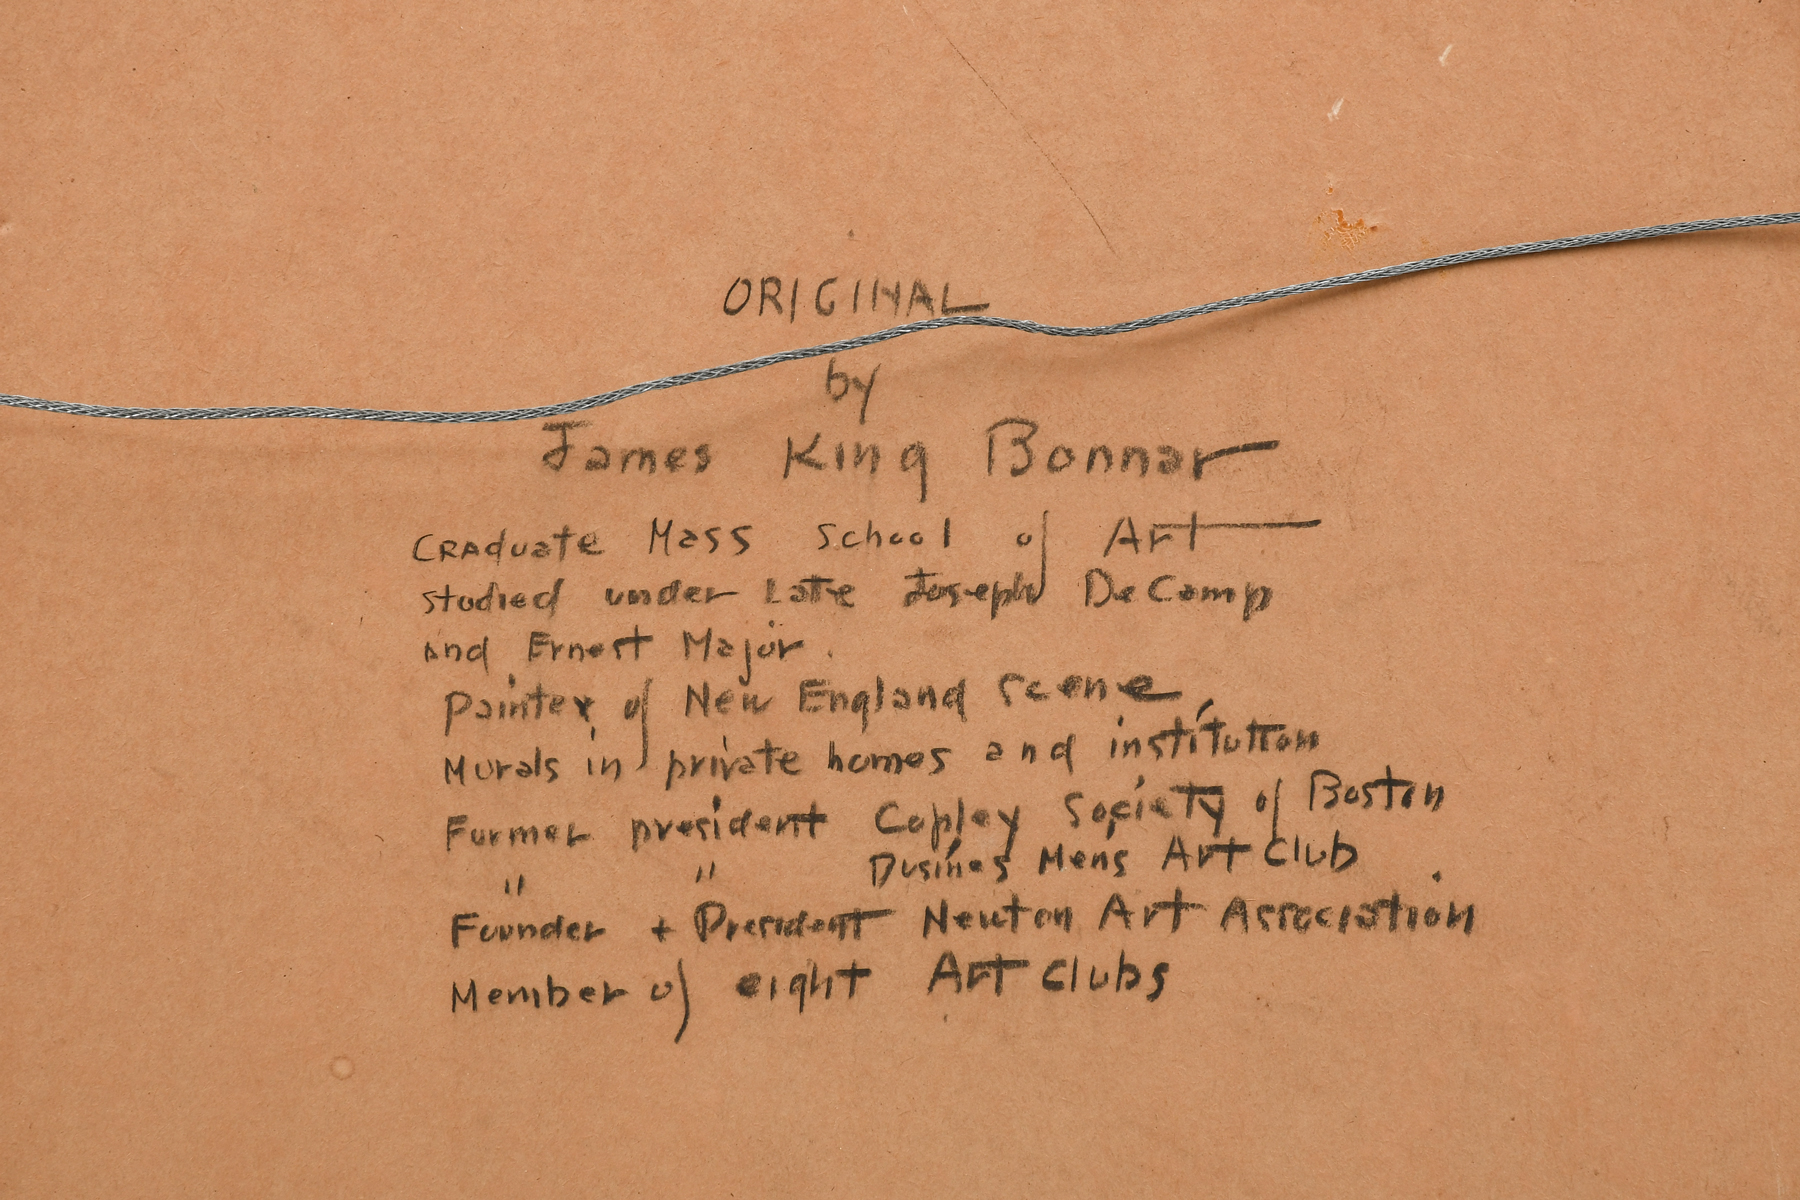 ORIGINAL
by
James King Bonnar
GRAduate Mass School of Art
studied under Late Joseph DeCamp
and Ernest Major.
Painter of New England scene,
Murals in private homes and institution
Former president Copley Society of Boston
" " Busines Men's Art Club
Founder + President Newton Art Association
Member of eight Art Clubs